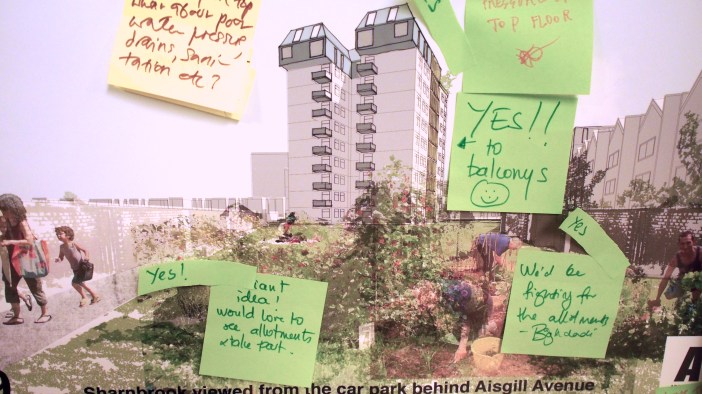 what about poor
water pressure
drains, sani-
tation etc?
TOP FLOOR
YES!!
to
balconys
Yes
Yes!
idea!
would love to
see allotments
& take part.
We'd be
fighting for
the allotments
Sharnbrook viewed from the car park behind Aisgill Avenue
A
9